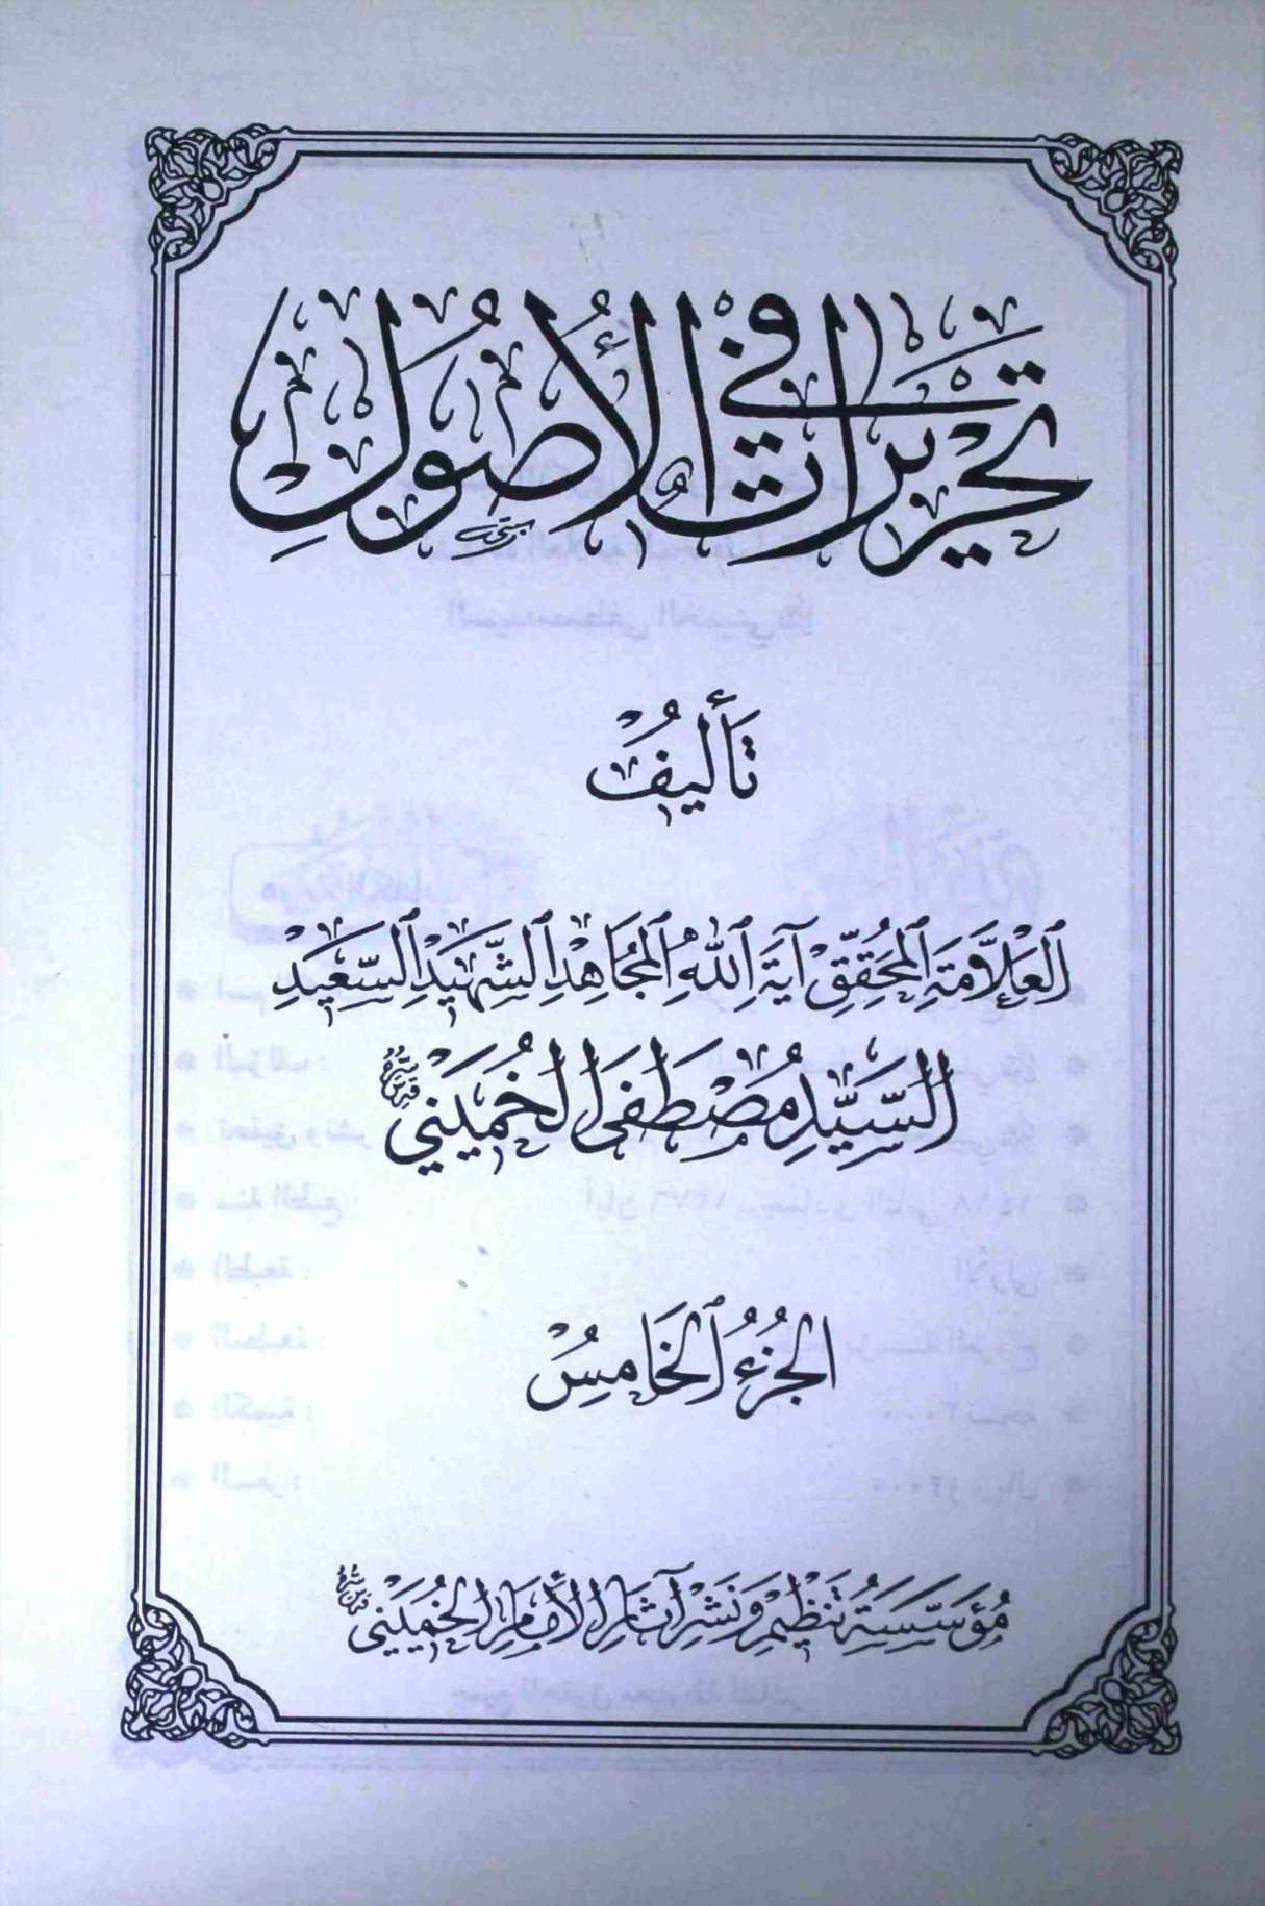 تحريرات في الأصول
تأليف
العلامة المحقق آية الله المجاهد الشهيد السعيد
السيد مصطفى الخميني
الجزء الخامس
مؤسسة تنظيم ونشر آثار الإمام الخميني